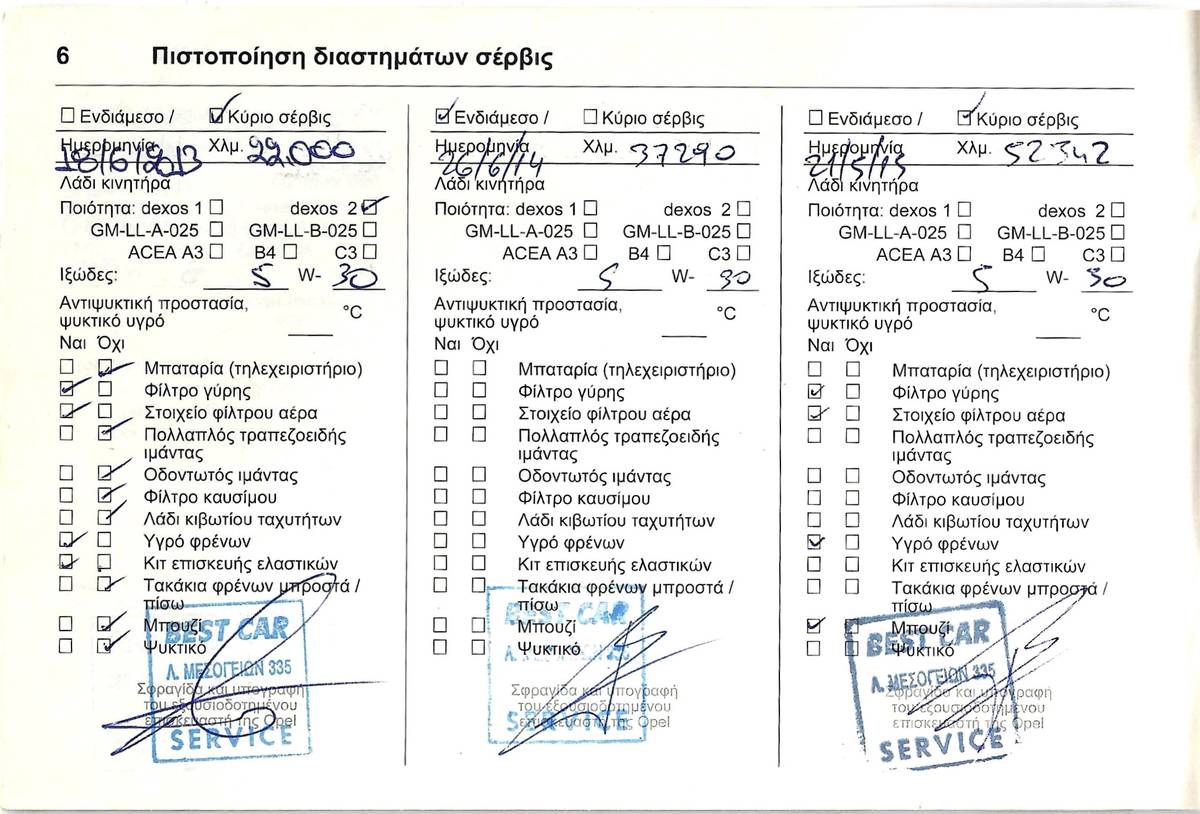 6 Πιστοποίηση διαστημάτων σέρβις
☐ Ενδιάμεσο / ☑ Κύριο σέρβις
Ημερομηνία 18/6/2013 Χλμ. 22.000
Λάδι κινητήρα
Ποιότητα: dexos 1 ☐ dexos 2 ☑
GM-LL-A-025 ☐ GM-LL-B-025 ☐
ACEA A3 ☐ B4 ☐ C3 ☐
Ιξώδες: 5 W- 30
Αντιψυκτική προστασία,
ψυκτικό υγρό °C
Ναι Όχι
☐ ☑ Μπαταρία (τηλεχειριστήριο)
☑ ☐ Φίλτρο γύρης
☑ ☐ Στοιχείο φίλτρου αέρα
☐ ☑ Πολλαπλός τραπεζοειδής
ιμάντας
☐ ☑ Οδοντωτός ιμάντας
☐ ☑ Φίλτρο καυσίμου
☐ ☑ Λάδι κιβωτίου ταχυτήτων
☑ ☐ Υγρό φρένων
☑ ☐ Κιτ επισκευής ελαστικών
☐ ☑ Τακάκια φρένων μπροστά /
πίσω
☐ ☑ Μπουζί
☐ ☑ Ψυκτικό
BEST CAR
Λ. ΜΕΣΟΓΕΙΩΝ 335
Σφραγίδα και υπογραφή
του εξουσιοδοτημένου
επισκευαστή της Opel
SERVICE
☑ Ενδιάμεσο / ☐ Κύριο σέρβις
Ημερομηνία 26/6/14 Χλμ. 37290
Λάδι κινητήρα
Ποιότητα: dexos 1 ☐ dexos 2 ☐
GM-LL-A-025 ☐ GM-LL-B-025 ☐
ACEA A3 ☐ B4 ☐ C3 ☐
Ιξώδες: 5 W- 30
Αντιψυκτική προστασία,
ψυκτικό υγρό °C
Ναι Όχι
☐ ☐ Μπαταρία (τηλεχειριστήριο)
☐ ☐ Φίλτρο γύρης
☐ ☐ Στοιχείο φίλτρου αέρα
☐ ☐ Πολλαπλός τραπεζοειδής
ιμάντας
☐ ☐ Οδοντωτός ιμάντας
☐ ☐ Φίλτρο καυσίμου
☐ ☐ Λάδι κιβωτίου ταχυτήτων
☐ ☐ Υγρό φρένων
☐ ☐ Κιτ επισκευής ελαστικών
☐ ☐ Τακάκια φρένων μπροστά /
πίσω
☐ ☐ Μπουζί
☐ ☐ Ψυκτικό
BEST CAR
Σφραγίδα και υπογραφή
του εξουσιοδοτημένου
επισκευαστή της Opel
SERVICE
☐ Ενδιάμεσο / ☑ Κύριο σέρβις
Ημερομηνία 21/5/15 Χλμ. 52342
Λάδι κινητήρα
Ποιότητα: dexos 1 ☐ dexos 2 ☐
GM-LL-A-025 ☐ GM-LL-B-025 ☐
ACEA A3 ☐ B4 ☐ C3 ☐
Ιξώδες: 5 W- 30
Αντιψυκτική προστασία,
ψυκτικό υγρό °C
Ναι Όχι
☐ ☐ Μπαταρία (τηλεχειριστήριο)
☑ ☐ Φίλτρο γύρης
☑ ☐ Στοιχείο φίλτρου αέρα
☐ ☐ Πολλαπλός τραπεζοειδής
ιμάντας
☐ ☐ Οδοντωτός ιμάντας
☐ ☐ Φίλτρο καυσίμου
☐ ☐ Λάδι κιβωτίου ταχυτήτων
☑ ☐ Υγρό φρένων
☐ ☐ Κιτ επισκευής ελαστικών
☐ ☐ Τακάκια φρένων μπροστά /
πίσω
☑ ☐ Μπουζί
☐ ☐ Ψυκτικό
BEST CAR
Λ. ΜΕΣΟΓΕΙΩΝ 335
Σφραγίδα και υπογραφή
του εξουσιοδοτημένου
επισκευαστή της Opel
SERVICE